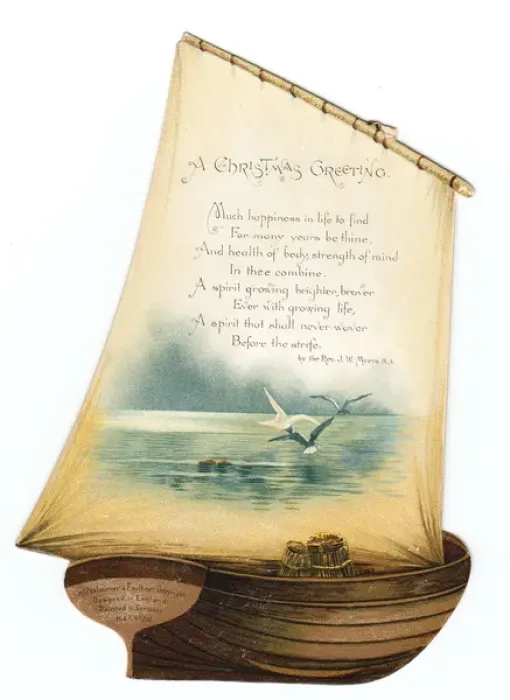 A CHRISTMAS GREETING.
Much happiness in life to find
For many years be thine,
And health of body, strength of mind
In thee combine.
A spirit growing brighter, braver
Ever with growing life,
A spirit that shall never waver
Before the strife.
by the Rev. J. W. Myers
& Faulkner Copyright
Designed in England
Printed in